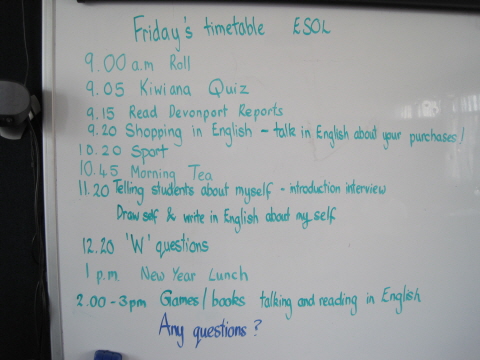 Friday's timetable ESOL
9.00 a.m Roll
9.05 Kiwiana Quiz
9.15 Read Devonport Reports
9.20 Shopping in English - talk in English about your purchases!
10.20 Sport
10.45 Morning Tea
11.20 Telling students about myself - introduction interview
Draw self & write in English about my self
12.20 'W' questions
1 p.m. New Year Lunch
2.00 - 3pm Games/books talking and reading in English
Any questions?